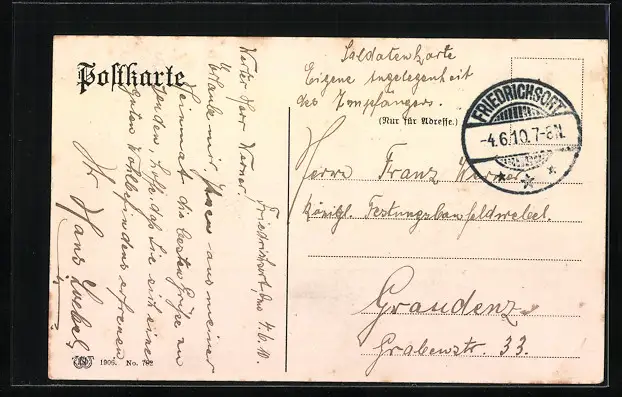 Postkarte
Soldatenkarte
Eigene Angelegenheit
des Empfängers.
(Nur für Adresse.)
FRIEDRICHSORT
-4.6.10.7-8N.
Herrn Franz Werner
Königl. Festungsbaufeldwebel.
Graudenz
Grabenstr. 33.
Friedrichsort, den 4.6.10.
Werter Herr Werner!
Erlaube mir Ihnen aus meiner
Heimat die besten Grüße zu
senden, hoffe, daß Sie sich eines
guten Wohlbefindens erfreuen
Ihr Hans
1906. No. 792